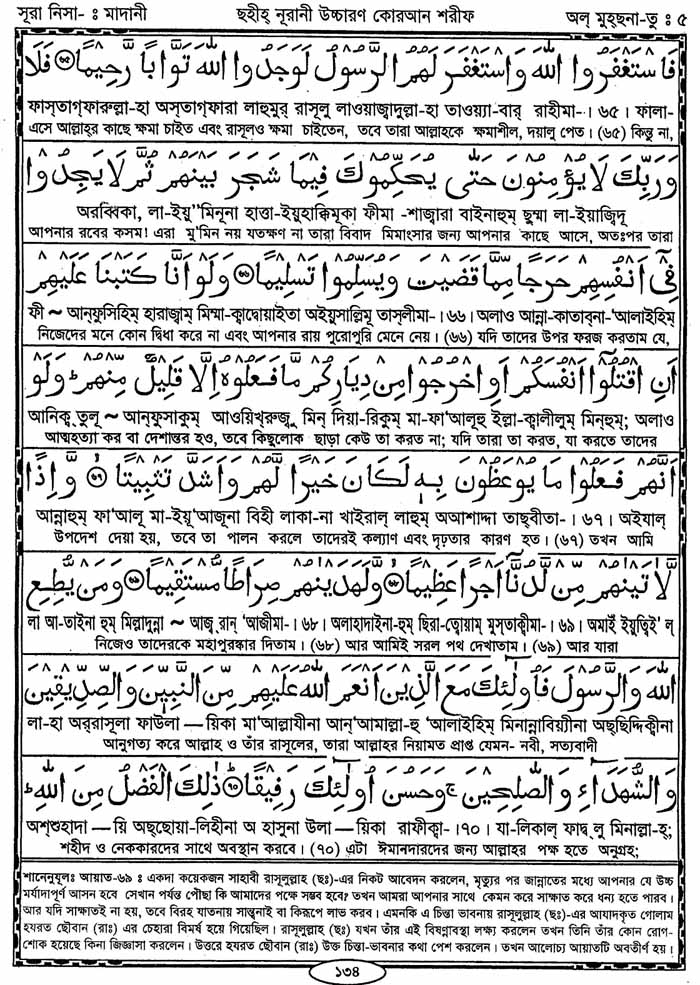 সূরা নিসা- ঃ মাদানী ছহীহ্ নূরানী উচ্চারণ কোরআন শরীফ অল্ মুহ্ছনা-তু ঃ ৫
فَاسْتَغْفَرُوا اللّٰهَ وَاسْتَغْفَرَ لَهُمُ الرَّسُوْلُ لَوَجَدُوا اللّٰهَ تَوَّابًا رَّحِيْمًا ﴿٦٤﴾ فَلَا
ফাস্তাগ্ফারুল্লা-হা অস্তাগ্ফারা লাহুমুর্ রাসূলু লাওয়াজ্বাদুল্লা-হা তাওয়্যা-বার্ রাহীমা-। ৬৫। ফালা-
এসে আল্লাহ্র কাছে ক্ষমা চাইত এবং রাসূলও ক্ষমা চাইতেন, তবে তারা আল্লাহকে ক্ষমাশীল, দয়ালু পেত। (৬৫) কিন্তু না,
وَرَبِّكَ لَا يُؤْمِنُوْنَ حَتّٰى يُحَكِّمُوْكَ فِيْمَا شَجَرَ بَيْنَهُمْ ثُمَّ لَا يَجِدُوْا
অরব্বিকা, লা-ইয়ু''মিনূনা হাত্তা-ইয়ুহাক্কিমূকা ফীমা -শাজ্বারা বাইনাহুম্ ছুম্মা লা-ইয়াজ্বিদূ
আপনার রবের কসম! এরা মু'মিন নয় যতক্ষণ না তারা বিবাদ মিমাংসার জন্য আপনার কাছে আসে, অতঃপর তারা
فِيْٓ اَنْفُسِهِمْ حَرَجًا مِّمَّا قَضَيْتَ وَيُسَلِّمُوْا تَسْلِيْمًا ﴿٦٥﴾ وَلَوْ اَنَّا كَتَبْنَا عَلَيْهِمْ
ফী ~ আন্ফুসিহিম্ হারাজ্বাম্ মিম্মা-ক্বাদ্বোয়াইতা অইয়ুসাল্লিমূ তাস্লীমা-। ৬৬। অলাও আন্না-কাতাব্না-'আলাইহিম্
নিজেদের মনে কোন দ্বিধা করে না এবং আপনার রায় পুরোপুরি মেনে নেয়। (৬৬) যদি তাদের উপর ফরজ করতাম যে,
اَنِ اقْتُلُوْٓا اَنْفُسَكُمْ اَوِ اخْرُجُوْا مِنْ دِيَارِكُمْ مَّا فَعَلُوْهُ اِلَّا قَلِيْلٌ مِّنْهُمْ ؕ وَلَوْ
আনিক্ব্ তুলূ ~ আন্ফুসাকুম্ আওয়িখ্রুজূ মিন্ দিয়া-রিকুম্ মা-ফা'আলূহু ইল্লা-ক্বালীলুম্ মিন্হুম্; অলাও
আত্মহত্যা কর বা দেশান্তর হও, তবে কিছুলোক ছাড়া কেউ তা করত না; যদি তারা তা করত, যা করতে তাদের
اَنَّهُمْ فَعَلُوْا مَا يُوْعَظُوْنَ بِهٖ لَكَانَ خَيْرًا لَّهُمْ وَاَشَدَّ تَثْبِيْتًا ﴿٦٦﴾ وَّاِذًا
আন্নাহুম্ ফা'আলূ মা-ইয়ূ'আজূনা বিহী লাকা-না খাইরাল্ লাহুম্ অআশাদ্দা তাছ্বীতা-। ৬৭। অইযাল্
উপদেশ দেয়া হয়, তবে তা পালন করলে তাদেরই কল্যাণ এবং দৃঢ়তার কারণ হত। (৬৭) তখন আমি
لَّاٰ تَيْنٰهُمْ مِّنْ لَّدُنَّآ اَجْرًا عَظِيْمًا ﴿٦٧﴾ وَّلَهَدَيْنٰهُمْ صِرَاطًا مُّسْتَقِيْمًا ﴿٦٨﴾ وَمَنْ يُّطِعِ
লা আ-তাইনা হুম্ মিল্লাদুন্না ~ আজ্ব্ রান্ 'আজীমা-। ৬৮। অলাহাদাইনা-হুম্ ছিরা-ত্বোয়াম্ মুস্তাক্বীমা-। ৬৯। অমাইঁ ইয়ুত্বিই' ল্
নিজেও তাদেরকে মহাপুরস্কার দিতাম। (৬৮) আর আমিই সরল পথ দেখাতাম। (৬৯) আর যারা
اللّٰهَ وَالرَّسُوْلَ فَاُولٰٓئِكَ مَعَ الَّذِيْنَ اَنْعَمَ اللّٰهُ عَلَيْهِمْ مِّنَ النَّبِيّٖنَ وَالصِّدِّيْقِيْنَ
লা-হা অর্রাসূলা ফাউলা — য়িকা মা'আল্লাযীনা আন্'আমাল্লা-হু 'আলাইহিম্ মিনান্নাবিয়্যীনা অছ্ছিদ্দিক্বীনা
আনুগত্য করে আল্লাহ ও তাঁর রাসূলের, তারা আল্লাহর নিয়ামত প্রাপ্ত যেমন- নবী, সত্যবাদী
وَالشُّهَدَآءِ وَالصّٰلِحِيْنَ ۚ وَحَسُنَ اُولٰٓئِكَ رَفِيْقًا ﴿٦٩﴾ ذٰلِكَ الْفَضْلُ مِنَ اللّٰهِ ؕ
অশ্শুহাদা — য়ি অছ্ছোয়া-লিহীনা অ হাসুনা উলা — য়িকা রাফীক্বা-। ৭০। যা-লিকাল্ ফাদ্ব্ লু মিনাল্লা-হ্;
শহীদ ও নেককারদের সাথে অবস্থান করবে। (৭০) এটা ঈমানদারদের জন্য আল্লাহর পক্ষ হতে অনুগ্রহ;
শানেনুযূলঃ আয়াত-৬৯ ঃ একদা কয়েকজন সাহাবী রাসূলুল্লাহ (ছঃ)-এর নিকট আবেদন করলেন, মৃত্যুর পর জান্নাতের মধ্যে আপনার যে উচ্চ
মর্যাদাপূর্ণ আসন হবে সেখান পর্যন্ত পৌছা কি আমাদের পক্ষে সম্ভব হবে? তখন আমরা আপনার সাথে কেমন করে সাক্ষাত করে ধন্য হতে পারব।
আর যদি সাক্ষাতই না হয়, তবে বিরহ যাতনায় সান্ত্বনাই বা কিরূপে লাভ করব। এমনকি এ চিন্তা ভাবনায় রাসূলুল্লাহ (ছঃ)-এর আযাদকৃত গোলাম
হযরত ছৌবান (রাঃ) এর চেহারা বিমর্ষ হয়ে গিয়েছিল। রাসূলুল্লাহ (ছঃ) যখন তাঁর এই বিষণ্নাবস্থা লক্ষ্য করলেন তখন তিনি তাঁর কোন রোগ-
শোক হয়েছে কিনা জিজ্ঞাসা করলেন। উত্তরে হযরত ছৌবান (রাঃ) উক্ত চিন্তা-ভাবনার কথা পেশ করলেন। তখন আলোচ্য আয়াতটি অবতীর্ণ হয়।
১৩৪